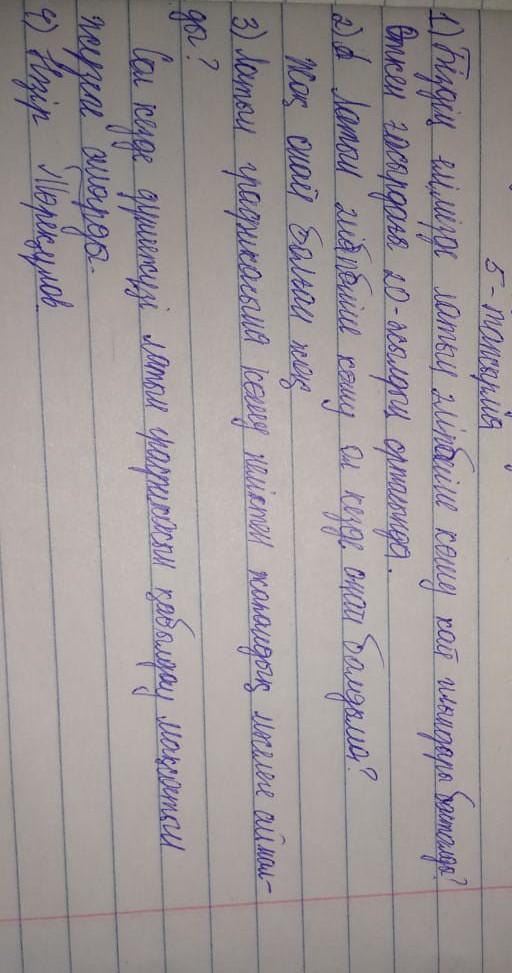 5-тапсырма
1) Біздің елімізде латын әліпбиіне көшу қай жылдары басталды?
Өткен ғасырдың 20-жылдың ортасында.
2) Латын әліпбиіне көшу ол кезде оңай болдыма?
Жоқ оңай болған жоқ
3) Латын графикасына көшу неліктен жаһандық мәселеге айнал-
ды?
Сол кезде латын графикасын қабылдау мақсатын
жүзеге асырды.
4) Нәзір Төреқұлов.